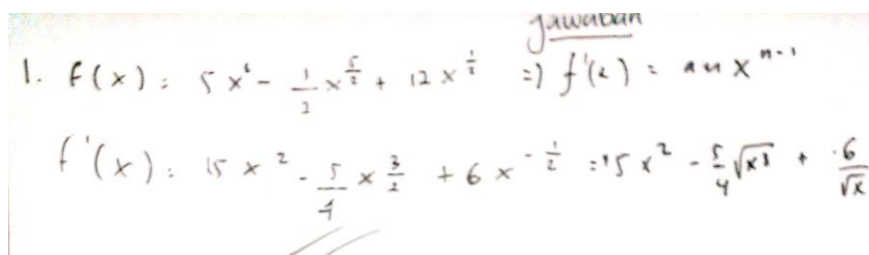 Jawaban
1. f(x) = 5x³ - 1/2 x^(5/2) + 12x^(1/2) => f'(x) = anx^(n-1)
f'(x) = 15x² - 5/4 x^(3/2) + 6x^(-1/2) = 15x² - 5/4 √x³ + 6/√x